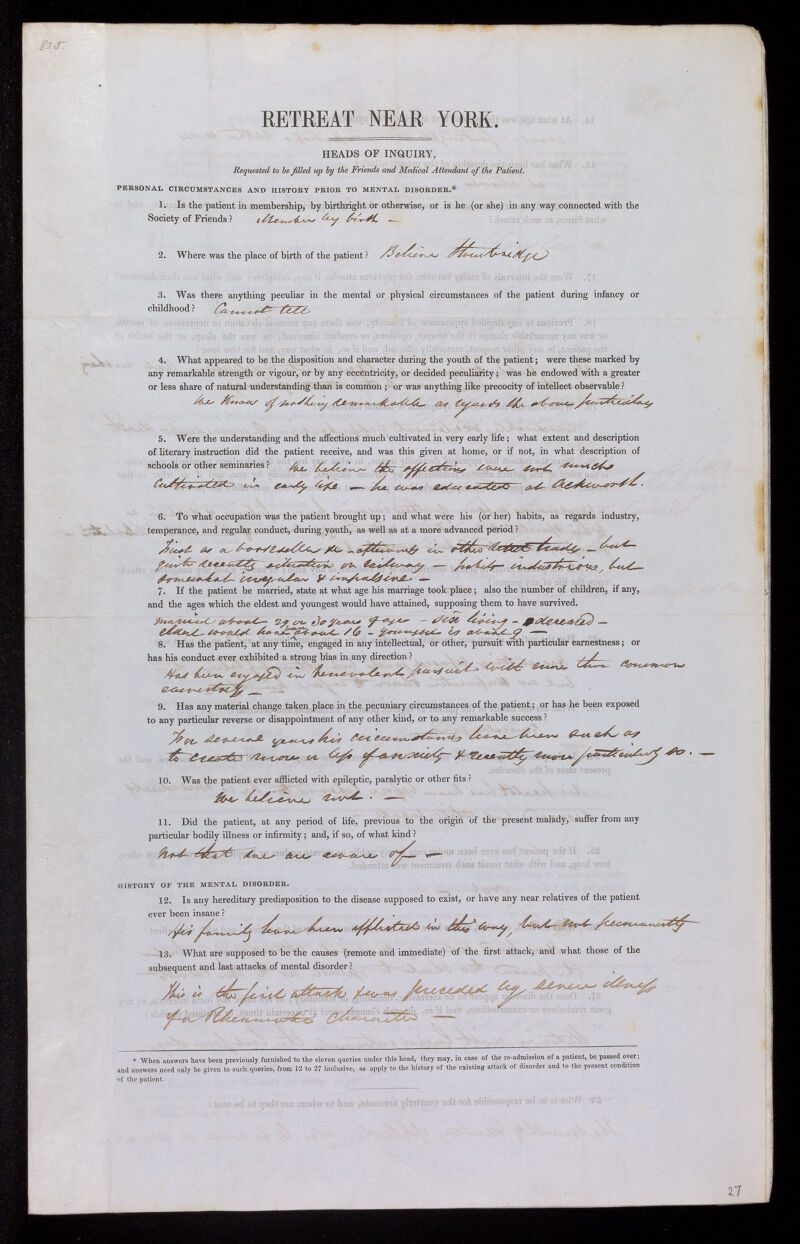 825.
RETREAT NEAR YORK.
HEADS OF INQUIRY,
Requested to be filled up by the Friends and Medical Attendant of the Patient.
PERSONAL CIRCUMSTANCES AND HISTORY PRIOR TO MENTAL DISORDER.*
1. Is the patient in membership, by birthright or otherwise, or is he (or she) in any way connected with the
Society of Friends? Member by birth —
2. Where was the place of birth of the patient? Believe Stourbridge
3. Was there anything peculiar in the mental or physical circumstances of the patient during infancy or
childhood? Cannot tell
4. What appeared to be the disposition and character during the youth of the patient; were these marked by
any remarkable strength or vigour, or by any eccentricity, or decided peculiarity; was he endowed with a greater
or less share of natural understanding than is common; or was anything like precocity of intellect observable?
We know of nothing remarkable as regards the above particulars
5. Were the understanding and the affections much cultivated in very early life; what extent and description
of literary instruction did the patient receive, and was this given at home, or if not, in what description of
schools or other seminaries? We believe the affections were not much
cultivated in early life — he was educated at Ackworth.
6. To what occupation was the patient brought up; and what were his (or her) habits, as regards industry,
temperance, and regular conduct, during youth, as well as at a more advanced period?
First as a bookseller &c — afterwards in other trades — but
quite recently situation on railway — habits industrious, but
somewhat irregular & impulsive —
7. If the patient be married, state at what age his marriage took place; also the number of children, if any,
and the ages which the eldest and youngest would have attained, supposing them to have survived.
married about 29 or 30 years of age — six living — deceased —
eldest would have been about 16 — youngest is about 9 —
8. Has the patient, at any time, engaged in any intellectual, or other, pursuit with particular earnestness; or
has his conduct ever exhibited a strong bias in any direction?
Has been engaged in benevolent pursuit with more than common
earnestness —
9. Has any material change taken place in the pecuniary circumstances of the patient; or has he been exposed
to any particular reverse or disappointment of any other kind, or to any remarkable success?
For several years his circumstances have been such as
to create more or less of anxiety & recently more particularly so. —
10. Was the patient ever afflicted with epileptic, paralytic or other fits?
We believe not. —
11. Did the patient, at any period of life, previous to the origin of the present malady, suffer from any
particular bodily illness or infirmity; and, if so, of what kind?
Not that we are aware of —
HISTORY OF THE MENTAL DISORDER.
12. Is any hereditary predisposition to the disease supposed to exist, or have any near relatives of the patient
ever been insane?
His family have been afflicted in this way, but not permanently
13. What are supposed to be the causes (remote and immediate) of the first attack, and what those of the
subsequent and last attacks of mental disorder?
This is the first attack & was preceded by severe illness
of a Rheumatic character —
* When answers have been previously furnished to the eleven queries under this head, they may, in case of the re-admission of a patient, be passed over;
and answers need only be given to such queries, from 12 to 27 inclusive, as apply to the history of the existing attack of disorder and to the present condition
of the patient.
27